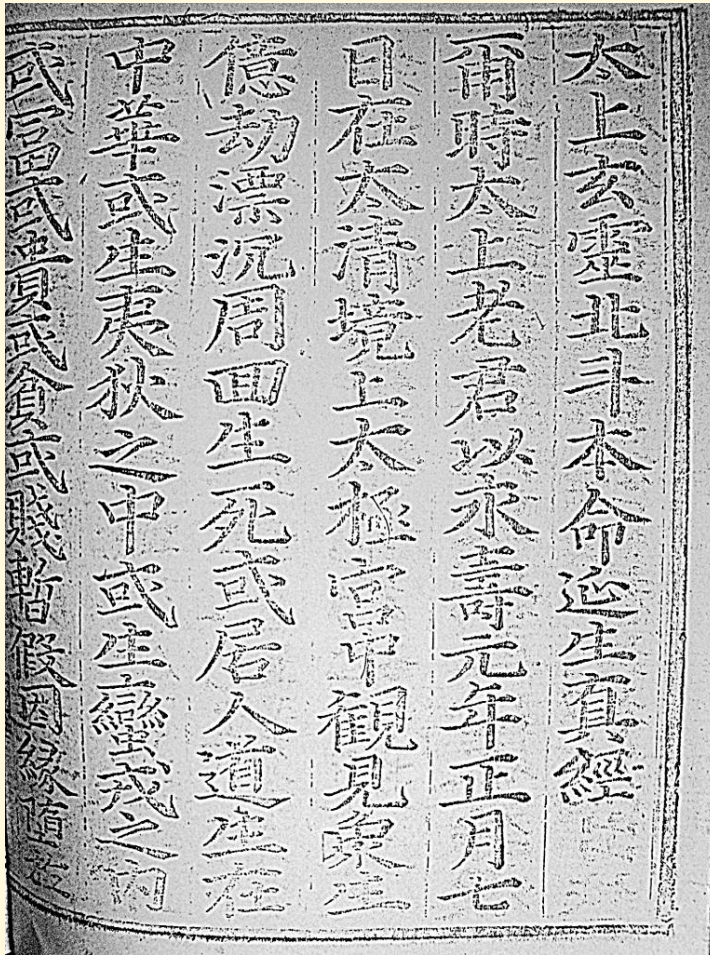 太上玄靈北斗本命延生真經
爾時太上老君以永壽元年正月七
日在太清境上太極宮中観見衆生
億劫漂沉周囬生死或居人道生在
中華或生夷狄之中或生蠻戎之內
或富或貴或貧或賤暫假因緣墮在